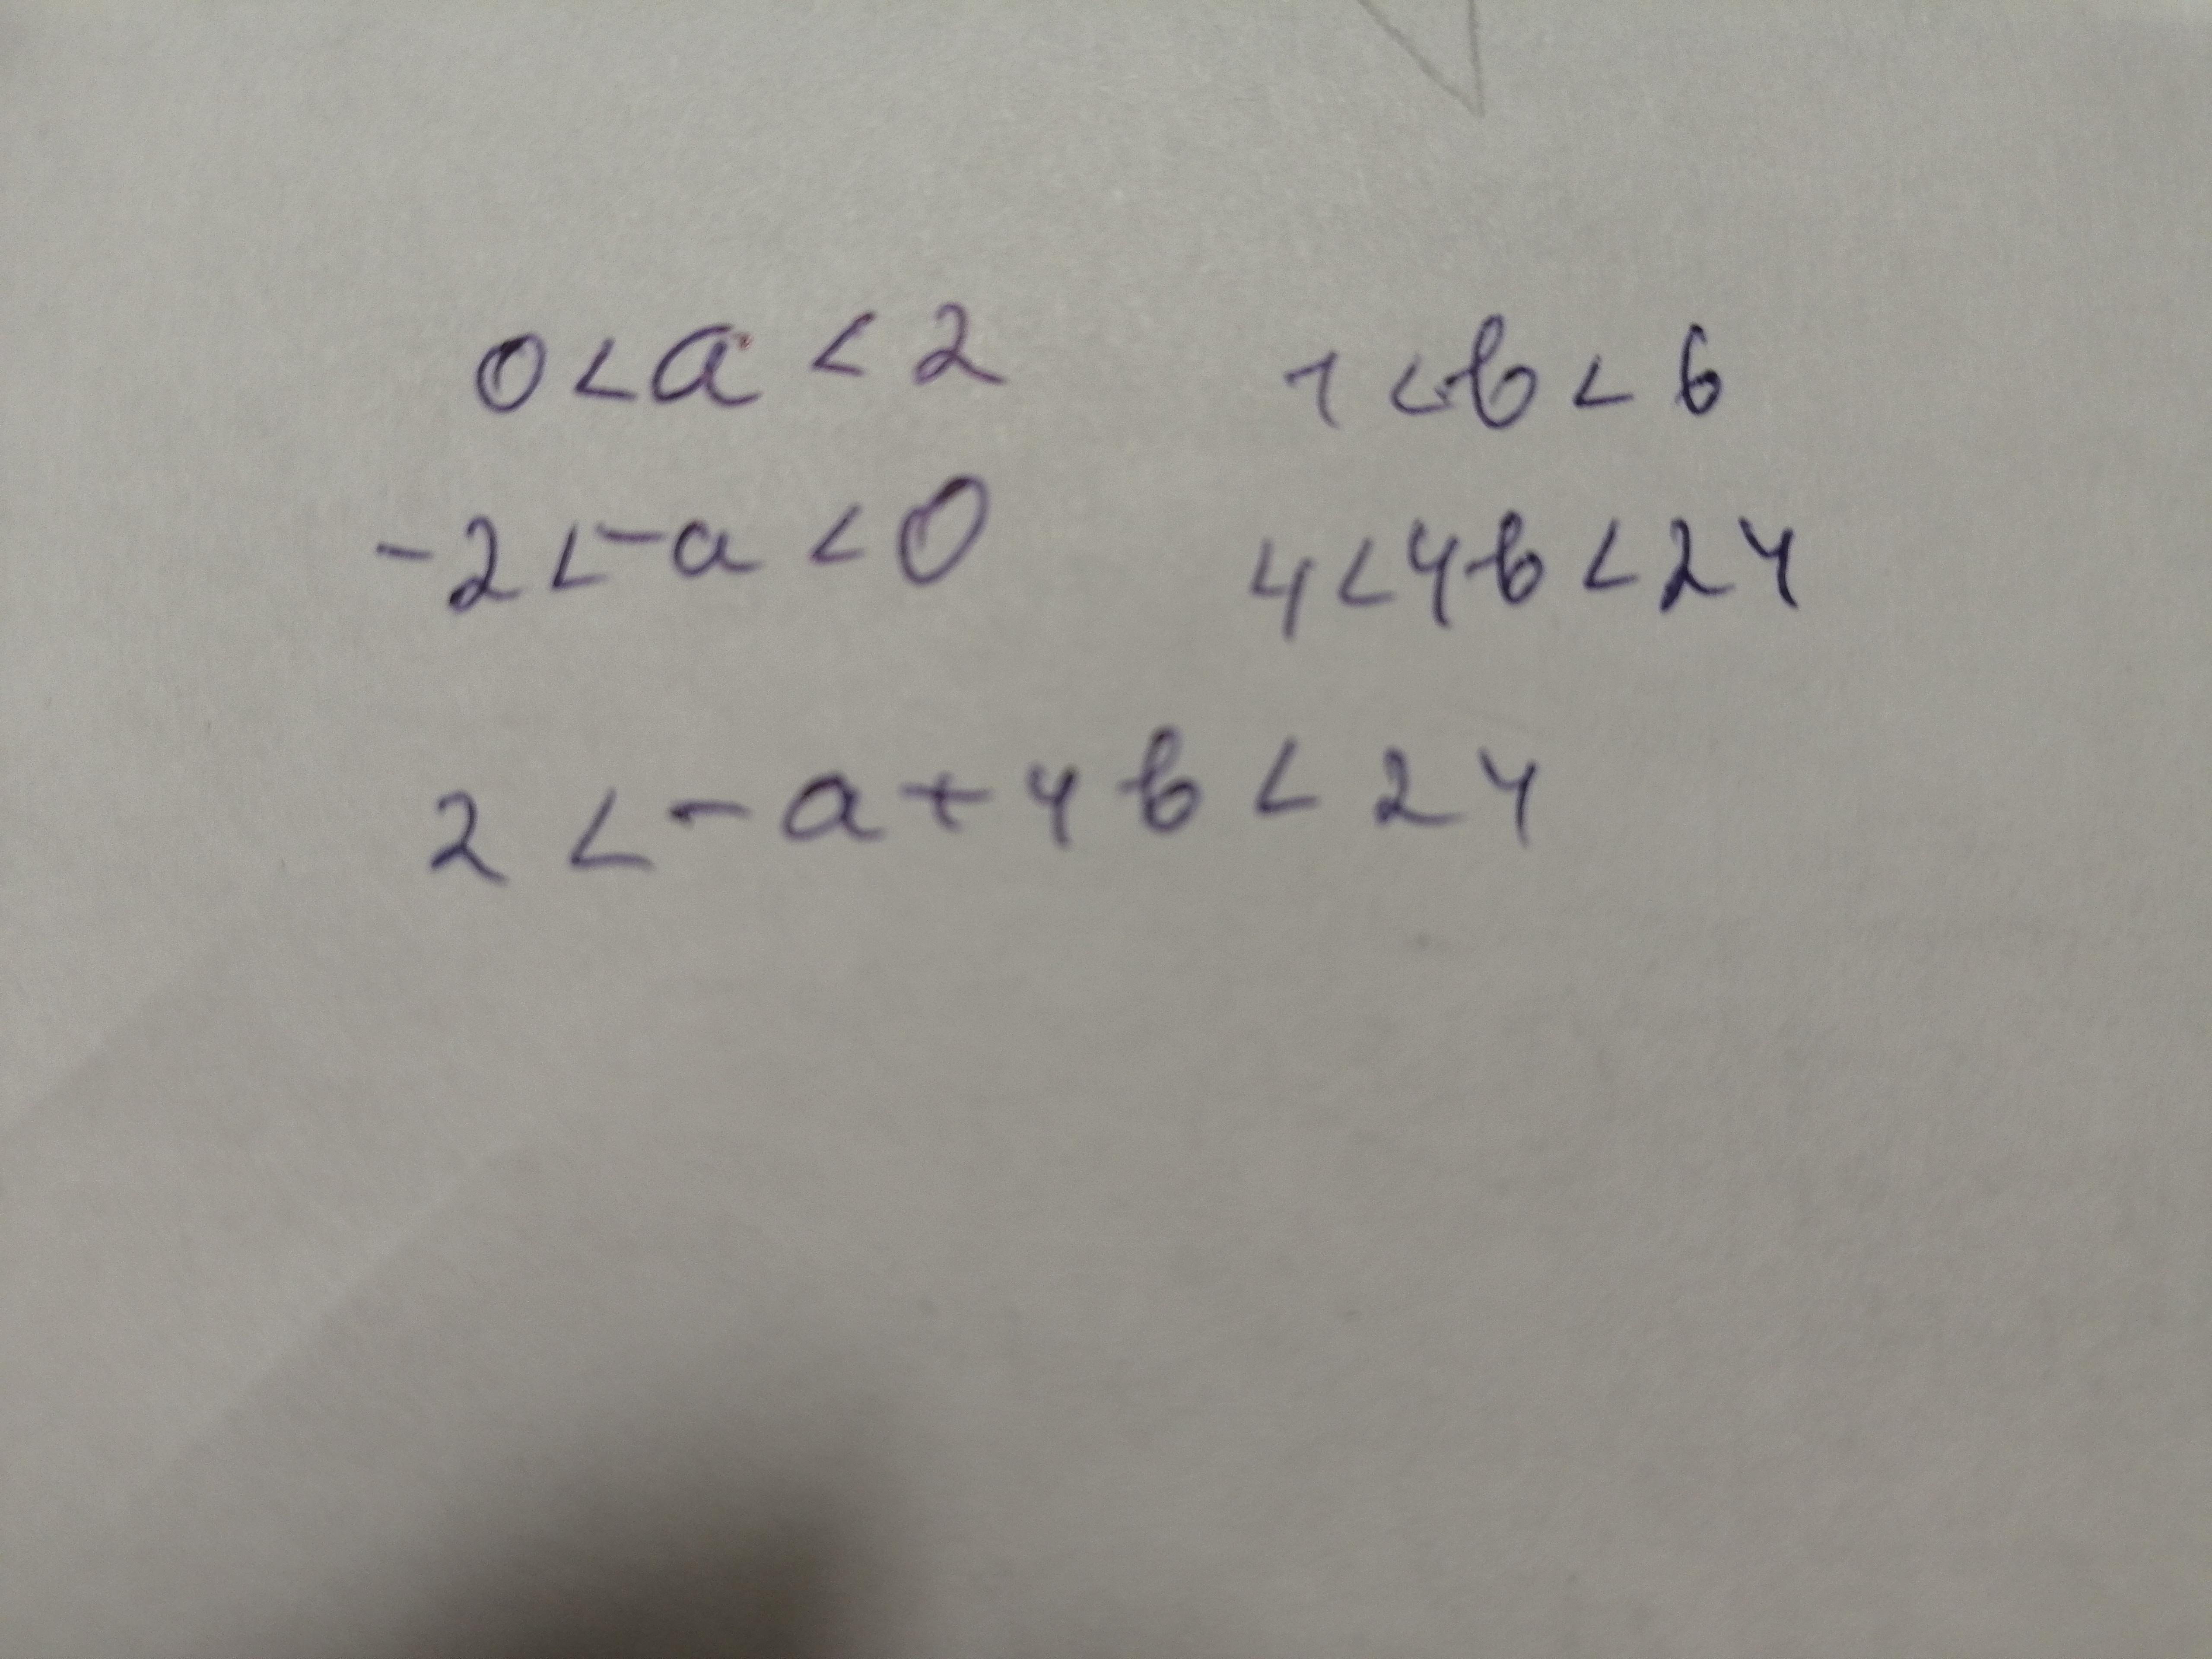 0 < a < 2 1 < b < 6
-2 < -a < 0 4 < 4b < 24
2 < -a + 4b < 24